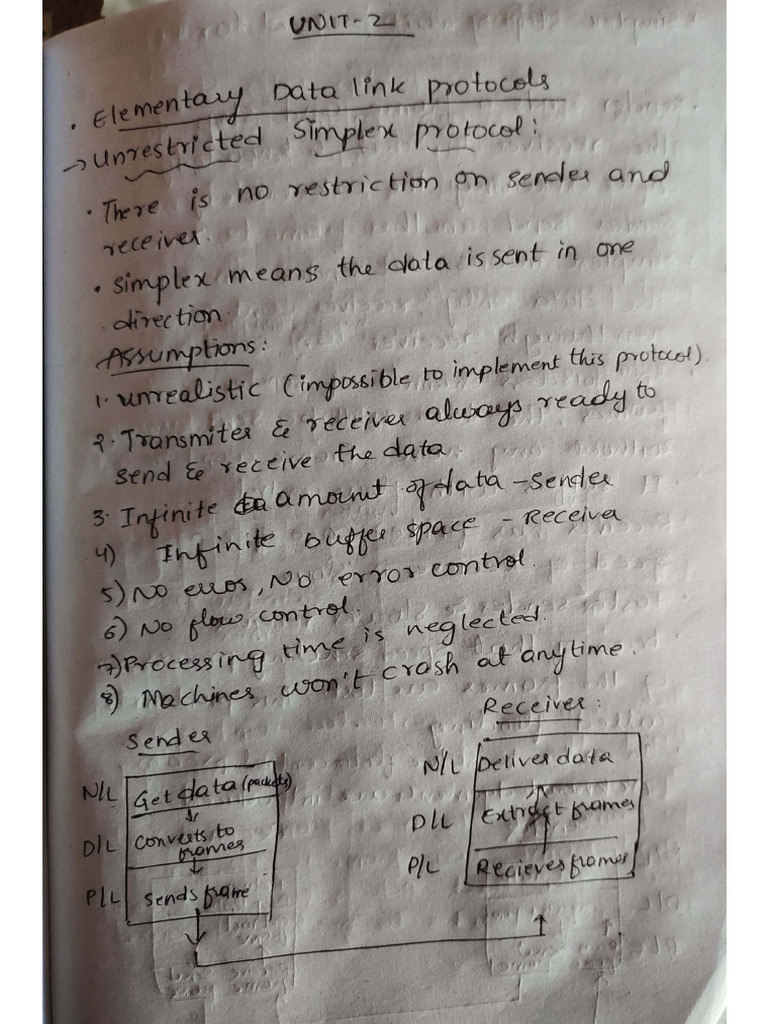 UNIT-2
• Elementary Data link protocols
→ Unrestricted Simplex protocol:
• There is no restriction on sender and
receiver.
• simplex means the data is sent in one
direction.
Assumptions:
1. unrealistic (impossible to implement this protocol).
2. Transmiter & receiver always ready to
send & receive the data.
3. Infinite amount of data - sender
4) Infinite buffer space - Receiver
5) No errors, No error control.
6) No flow control.
7) Processing time is neglected.
8) Machines won't crash at anytime.
Sender
Receiver:
N/L Get data (packets)
D/L Converts to
frames
P/L Sends frame
N/L Deliver data
D/L Extract frames
P/L Recieves frames